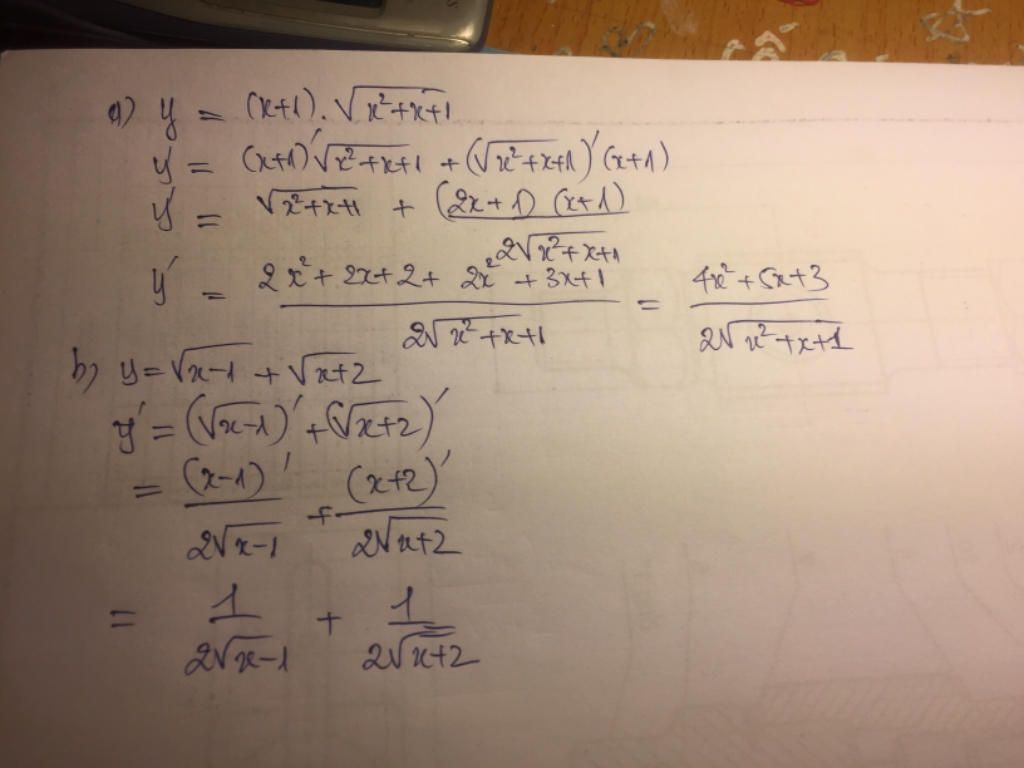 a) y = (x+1).√(x²+x+1)
y' = (x+1)'√(x²+x+1) + (√(x²+x+1))'(x+1)
y' = √(x²+x+1) + ((2x+1)(x+1))/(2√(x²+x+1))
y' = (2x²+2x+2+2x²+3x+1)/(2√(x²+x+1)) = (4x²+5x+3)/(2√(x²+x+1))
b) y = √(x-1) + √(x+2)
y' = (√(x-1))' + (√(x+2))'
= (x-1)'/(2√(x-1)) + (x+2)'/(2√(x+2))
= 1/(2√(x-1)) + 1/(2√(x+2))